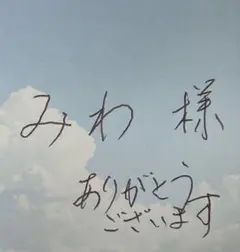 みわ 様
ありがとう
ございます